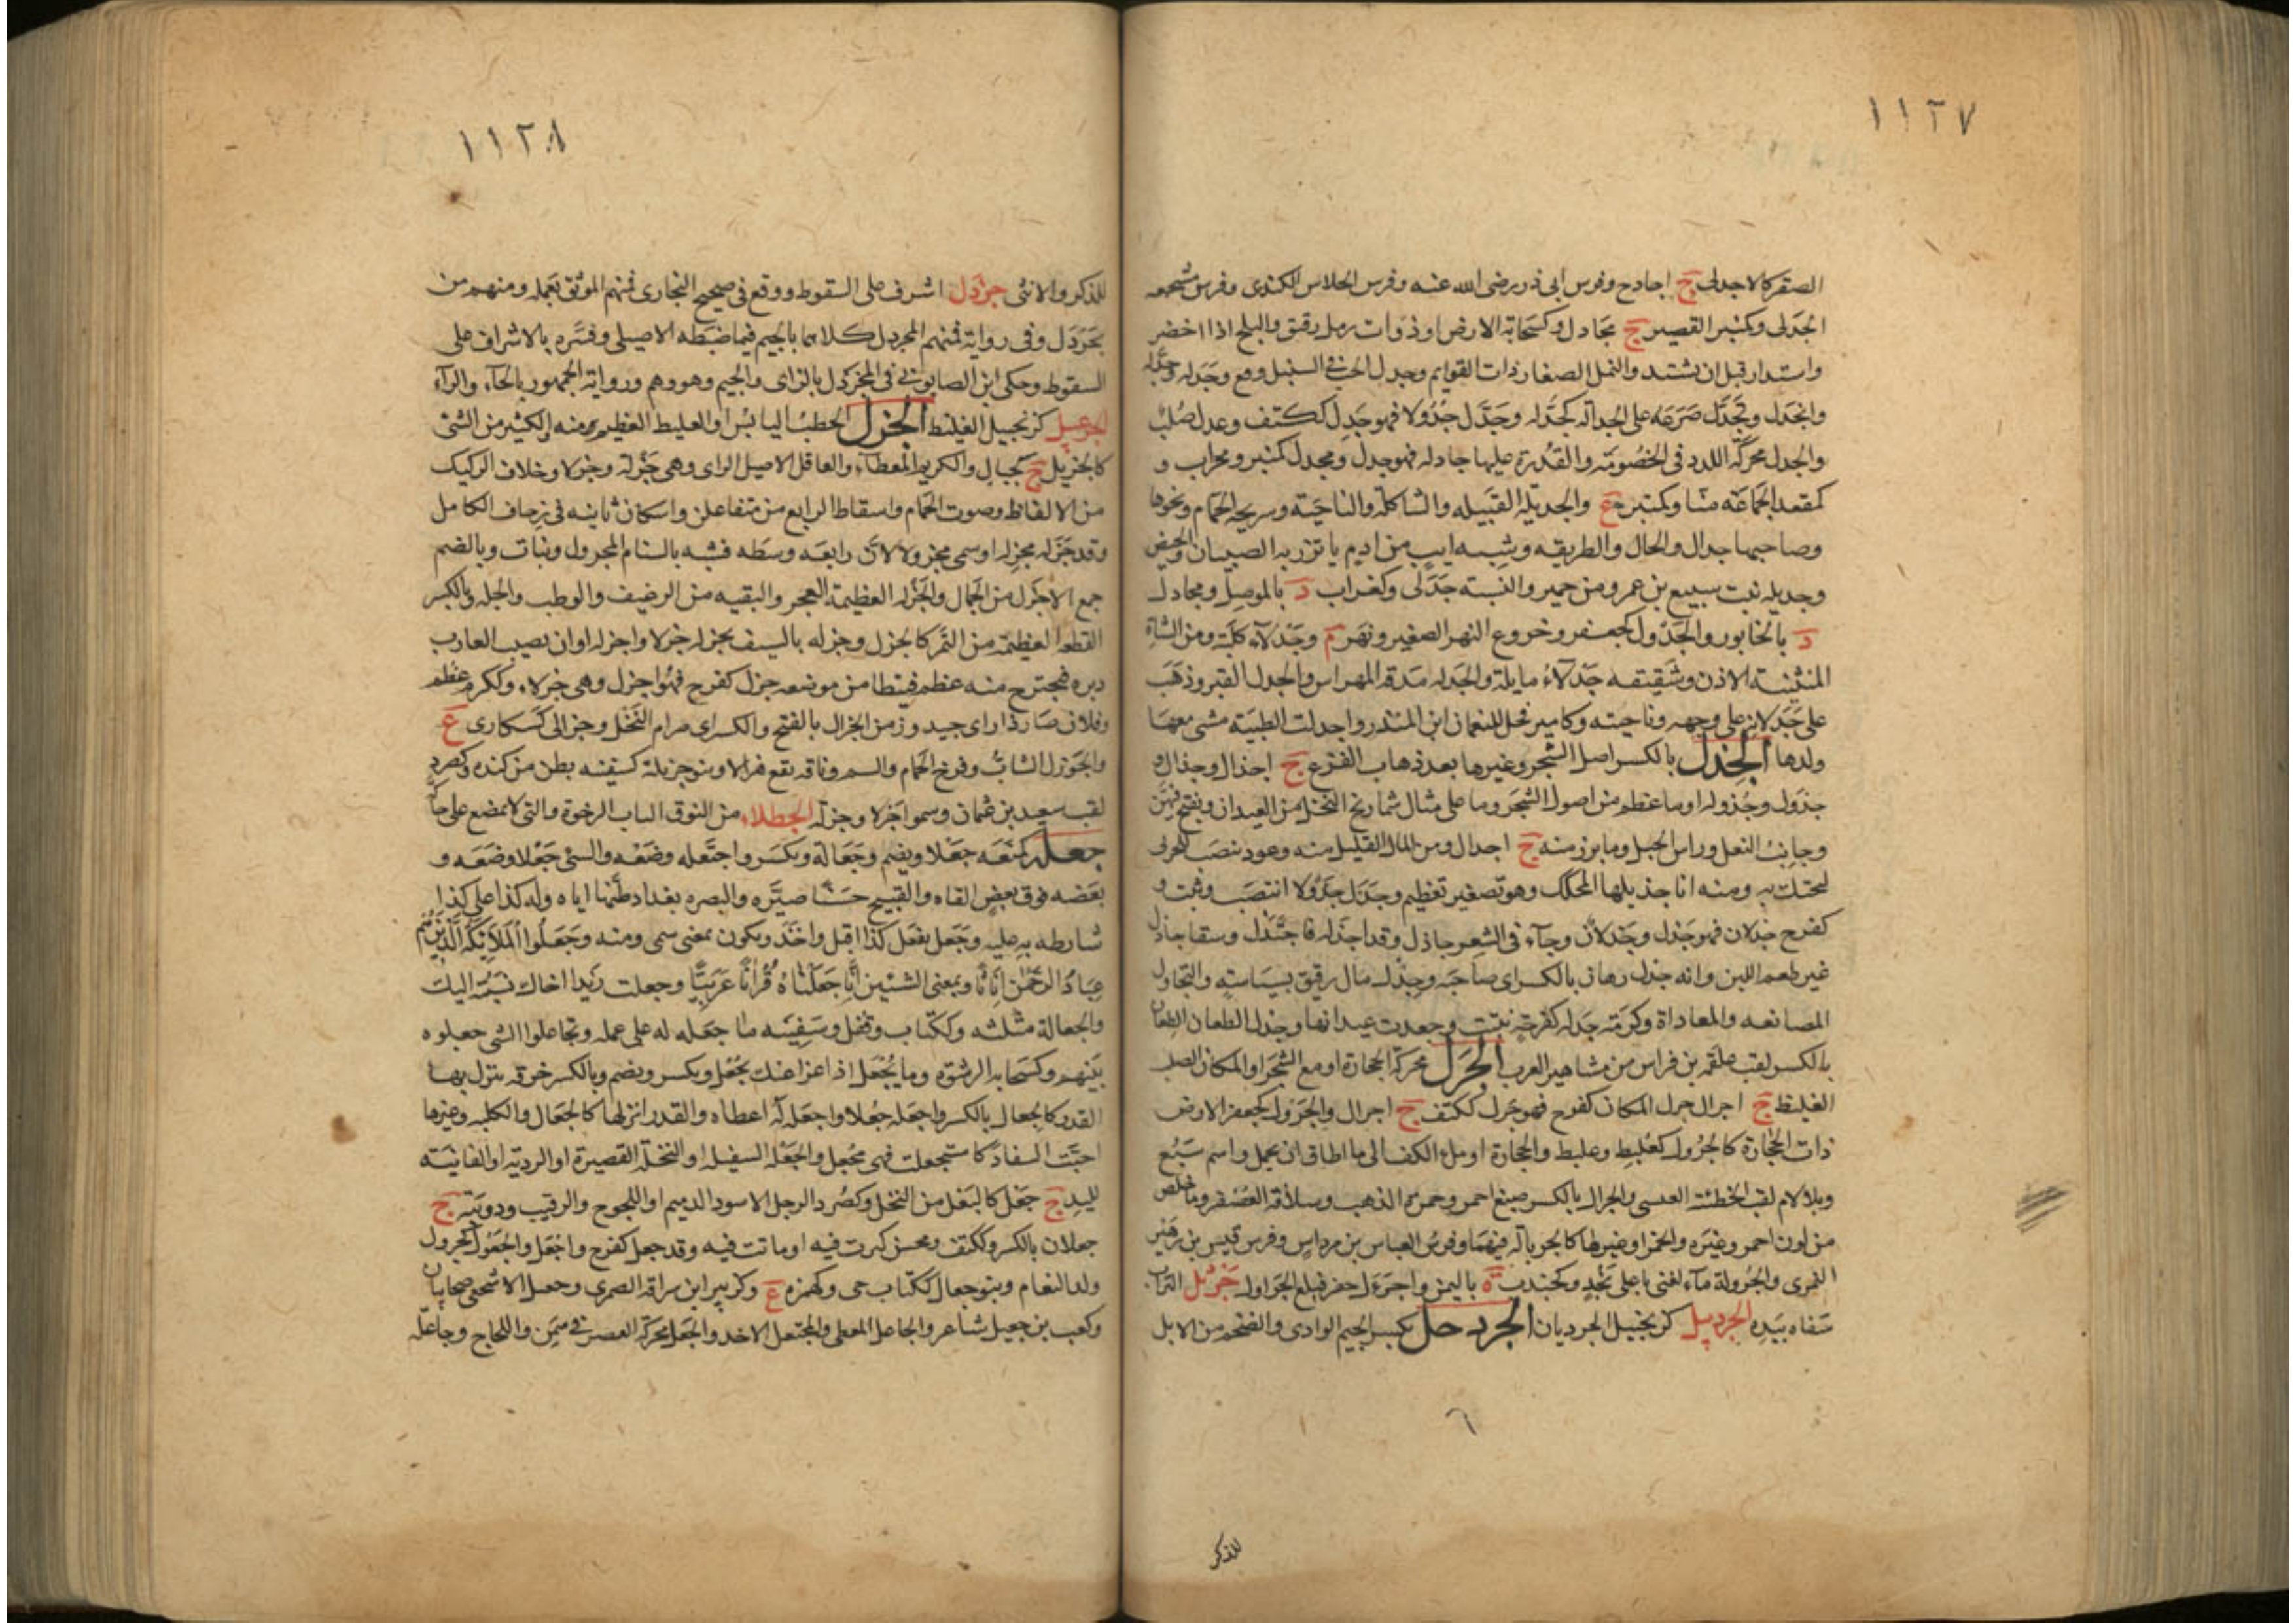 ١١٢٧
الصقر كالاجدلى ج اجادح وفرس ابى ذر رضى الله عنه وفرس الجلاس الكندى وفرس مشجعه
الجدلى وكمنبر القصير ج مجادل وكسحابة الارض او ذوات رمل رقيق والبلح اذا اخضر
واستدار قبل ان تشتد والنمل الصغار ذات القوايم وجدل الحب فى السنبل وقع وجدله وجدّله
وانجدل وتجدّل صرعه على الجدالة كجدّله وجدّل جدولا فهو جدل ككتف وعدل صُلبٌ
والجدل محركّه اللدد فى الخصومة والقدرة عليها جادله فهو جدل ومجدل كمنبر ومحراب و
كمقعد الجماعة منا وكمنبر ع والجديلة القبيله والشاكلة والناحية وسريجه الحمام ونحوها
وصاحبها جدال والحال والطريقه وشبه ايب من ادم ياتزر به الصبيان والحيض
وجديله بنت سبيع بن عمرو من حمير والنسبة جدلى وكغراب د بالموصل ومجادل
د بالخابور والجدول كجعفر وخروع النهر الصغير ونهر م وجدلاء كلبة ومن الشاة
المنثنية الاذن وشقيقه جدلاء مايلة والجدله مدقة المهراس والجدل القبر وذهب
على جدلانه على وجهه وناحيته وكامير فحل للنعمان ابن المنذر واجدلت الظبية مشى معها
ولدها الجذل بالكسر اصل الشجر وغيرها بعد ذهاب الفرع ج اجذال وجذال و
جذول وجذوله او ما عظم من اصول الشجر وما على مثال شماريخ النخل من العيدان ويفتح فيهن
وجانب النعل وراس الجبل وما برز منه ج اجدال ومن المال القليل منه وعود ينصب للجربى
لتحتك به ومنه انا جذيلها المحكك وهو تصغير تعظيم وجذل جذولا انتصب وثبت و
كفرح جذلان فهو جذل وجذلان وجاء فى الشعر جاذل وقد اجذله فاجتذل وسقا جاذل
غير طعم اللبن وانه جذل رهان بالكسر اى صاحبه وجذل مال رقيق بسياسته والتجاول
المصانعه والمعاداة وكرمة جذله كفرحة نبتت وجعدت عيدانها وجذل الطعان
بالكسر لقب علقمه بن فراس من مشاهير العرب الجرل محركة الحجارة او مع الشجر او المكان الصلب
الغليظ ج اجرال جرل المكان كفرح فهو جرل ككتف ج اجرال والجرول كجعفر الارض
ذات الحجارة كالجرول كعلبط وعلبط والحجارة او ملء الكف الى ما اطاق ان يحمل واسم سَبُع
وبلا لام لقب الحطئة العبسى والجرال بالكسر صبغ احمر وحمرة الذهب وسلافة العصفر وما خلص
من لون احمر وغيره والخمر او غيرها كالجريالة فيهما وفرس العباس بن مرداس وفرس قيس بن زهير
النمرى والجرولة ماء لغنى باعلى نجد وكجندب ة باليمن واجرءل حفر فبلغ الجراول جرئل التراب
سفاه بيده الجردبيل كزنجبيل الجرديان الجردحل بكسر الجيم الوادى والضخم من الابل
٦
للذكر
١١٢٨
للذكر والانثى جردل اشرف على السقوط ووقع فى صحيح البخارى فمنهم الموثق بعمله ومنهم من
يجردل وفى رواية فمنهم المجردل كلاهما بالجيم فيما ضبطه الاصيلى وفسّره بالاشراف على
السقوط وحكى ابن الصابونى فى المخزدل بالزاى والجيم وهو وهم ورواية الجمهور بالخاء والراء
الجرعبيل كزنجبيل الغليظ الجزل الحطب اليابس او الغليظ العظيم منه والكثير من الشئ
كالجزيل ج كجبال والكريم المعطاء والعاقل الاصيل الراى وهى جزلة وجزلا وخلاف الركيك
من الالفاظ وصوت الحمام واسقاط الرابع من متفاعلن واسكان ثانيه فى زحاف الكامل
وقد جزله يجزله او سمى مجزولا لان رابعه وسطه فشبه بالسنام المجزول ونبات وبالضم
جمع الاجزل من الجمال والجزلة العظيمة العجز والبقيه من الرغيف والوطب والجله وبالكسر
القطعه العظيمة من التمر كالجزل وجزله بالسيف يجزله جزلا واجزله او ان يصيب الغارب
دبره فيخرج منه عظم فيتطامن موضعه جزل كفرح فهو اجزل وهى جزلاء وككرم عظم
وفلان صار ذا راى جيد وزمن الجزال بالفتح والكسر اى صرام النخل وجزالى كسكارى ع
والجوزل الشاب وفرخ الحمام والسم وناقه تقع هزالا وبنو جزيلة كسفينه بطن من كنده وكصرد
لقب سعيد بن عثمان وسموا جزلا وجزلة الجطلاء من النوق الناب الرخوة والتى لا تمضغ على حاكة
جعله كمنعه جعلا ويضم وجعالة ويكسر واجتعله وضعه والشئ جعلا وضعه و
بعضه فوق بعض القاه والقبيح حسنا صيّره والبصره بغداد ظنها اياه وله كذا على كذا
شارطه به عليه وجعل يفعل كذا اقبل واخذ ويكون بمعنى سمى ومنه وجعلوا الملائكة الذين هم
عباد الرحمن اناثا وبمعنى التبيين انا جعلناه قرانا عربيا وجعلت زيدا اخاك نسبته اليك
والجعالة مثلثه وككتاب وقفل وسفينه ما جعله له على عمله وتجاعلوا الشئ جعلوه
بينهم وكسحابه الرشوه وما يجعل اذا غزا عنك بجُعل ويكسر ويضم وبالكسر خرقه ينزل بها
القدر كالجعال بالكسر واجعله جعلا واجعله له اعطاه والقدر انزلها كالجعال والكلبه وغيرها
احبّت السفاد كاستجعلت فهى مجعل والجعله السفيله او النخلة القصيرة او الرديّه او الفانيته
لليد ج جعل كالبغل من النخل وكصرد الرجل الاسود الدميم او اللجوج والرقيب ودويّبة ج
جعلان بالكسر وككتف ومحسن كبرت فيه او ماتت فيه وقد جعل كفرح واجعل والجعول كجرول
ولد النعام وبنو جعال ككتاب حى وكهمزه ع وكزبير ابن سراقه الضمرى وجعل الاشجعى صحابيان
وكعب بن جعيل شاعر والجاعل المعطى والمجتعل الاخذ والجعل محركة القصر فى سمن واللجاج وجاعله